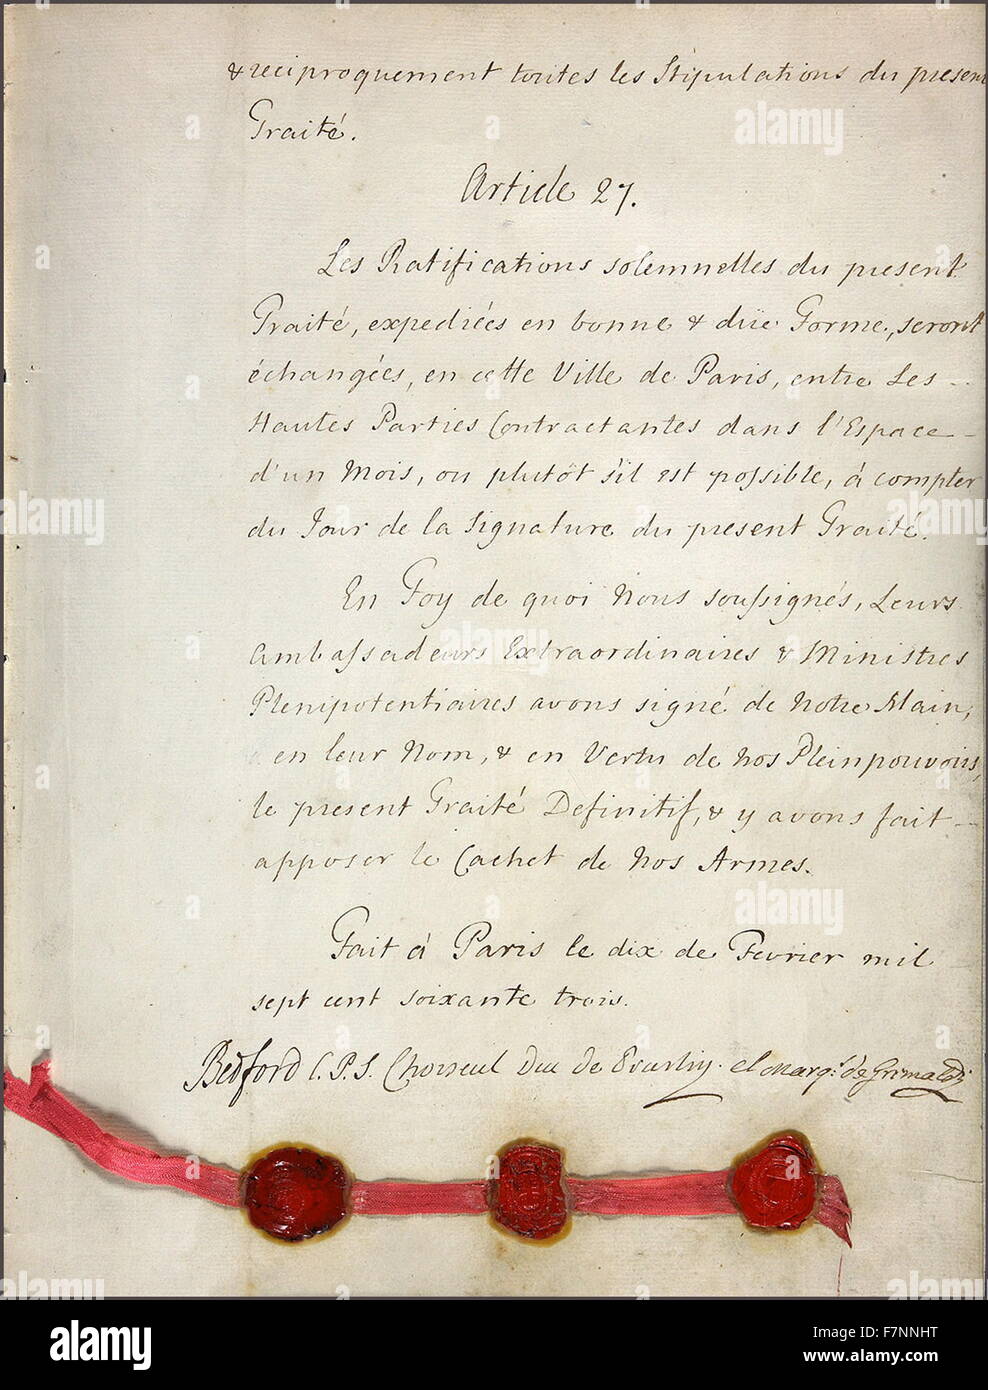 & reciproquement toutes les Stipulations du present
Traité.
Article 27.
Les Ratifications solemnelles du present
Traité, expediées en bonne & düe Forme, seront
échangées, en cette Ville de Paris, entre Les
Hautes Parties Contractantes dans l'Espace
d'un Mois, ou plutôt s'il est possible, à compter
du Jour de la Signature du present Traité.
En Foy de quoi Nous soussignés, Leurs
Ambassadeurs Extraordinaires & Ministres
Plenipotentiaires avons signé de Notre Main,
en leur Nom, & en Vertu de nos Pleinpouvoirs,
le present Traité Definitif, & y avons fait
apposer le Cachet de Nos Armes.
Fait à Paris le dix de Fevrier mil
sept cent soixante trois.
Bedford C.P.S. Choiseul Duc de Praslin. el Marq.s de Grimaldi
a alamy
alamy
Image ID: F7NNHT
www.alamy.com